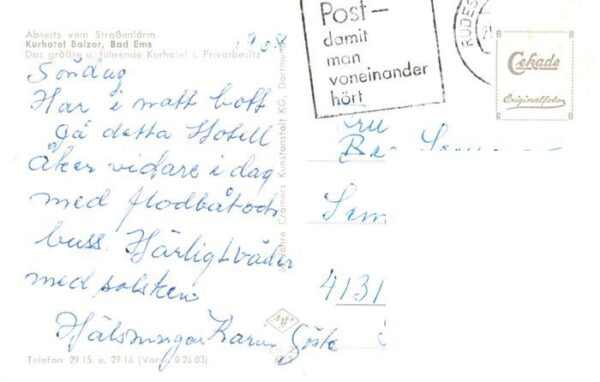 Abseits vom Straßenlärm
Kurhotel Balzer, Bad Ems
Das größte u. führende Kurhotel i. Privatbesitz
1968
Söndag
Har i natt bott
på detta Hotell
åker vidare i dag
med flodbåt och
buss. Härligt väder
med solsken
Hälsningar Karin Gösta
Telefon 29 15 u. 29 16 (Vorw. 0 26 03)
Cramers Kunstanstalt KG, Dortmund
Post –
damit
man
voneinander
hört
RÜDES
Cekade
Originalfoto
Fru
4131